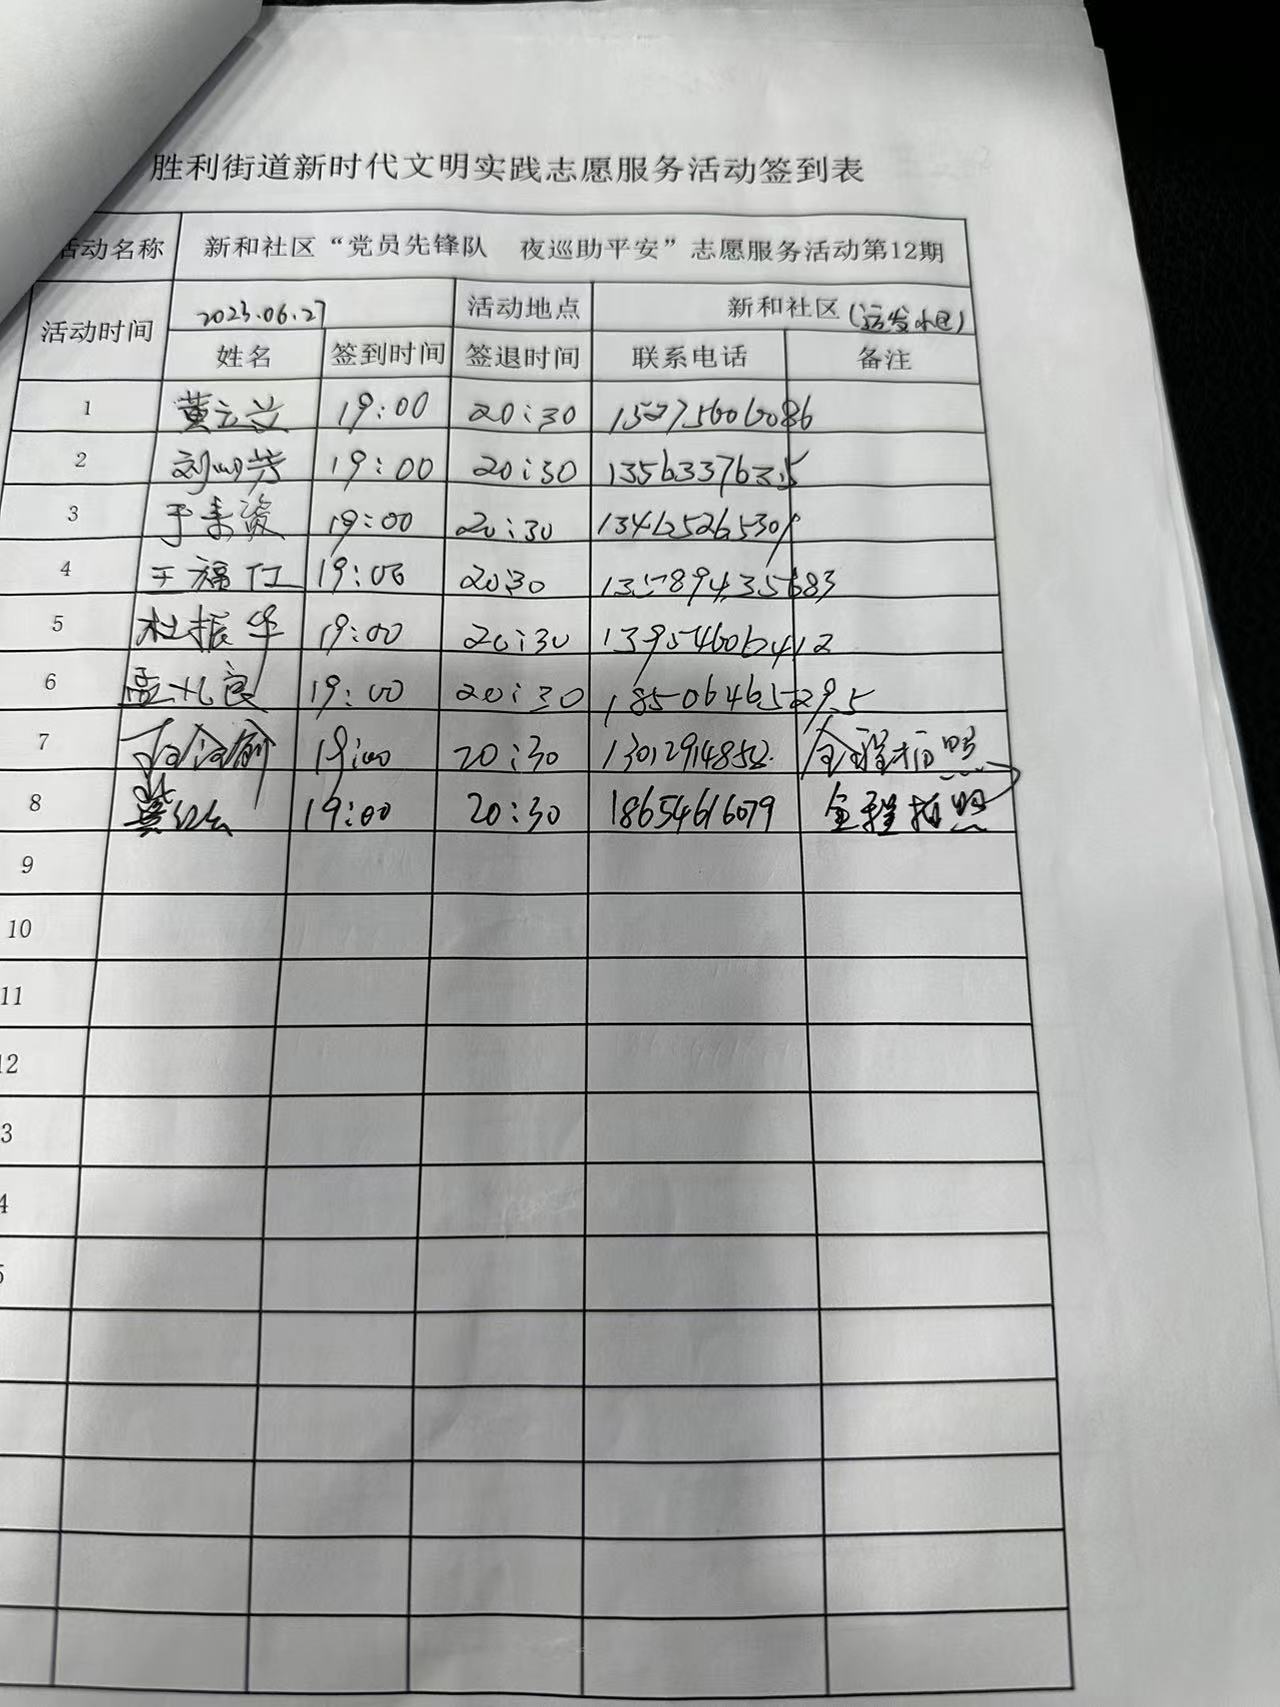 胜利街道新时代文明实践志愿服务活动签到表
活动名称 新和社区“党员先锋队 夜巡助平安”志愿服务活动第12期
活动时间 2023.06.27 活动地点 新和社区
姓名 签到时间 签退时间 联系电话 备注
1 黄云兰 19:00 20:30 15275606086
2 刘 芳 19:00 20:30
3 于 19:00 20:30
4 王福仁 19:00 20:30
5 杜振华 19:00 20:30 13954606412
6 孟 良 19:00 20:30 18506465295
7 19:00 20:30 全程拍照
8 19:00 20:30 18654616079 全程拍照
9
10
11
12
3
4
5